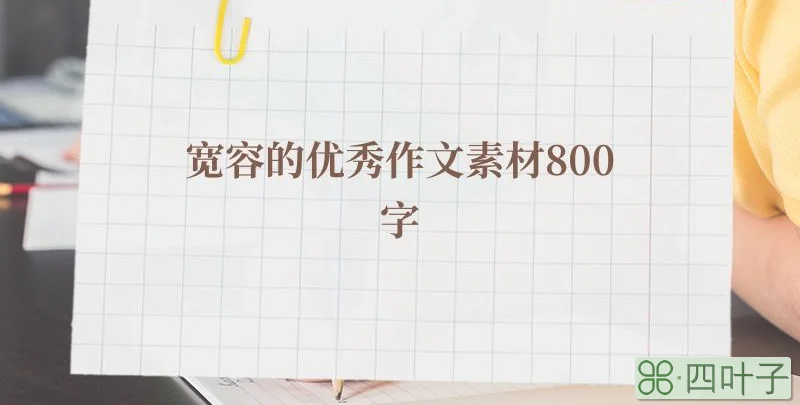 宽容的优秀作文素材800
字
四叶子